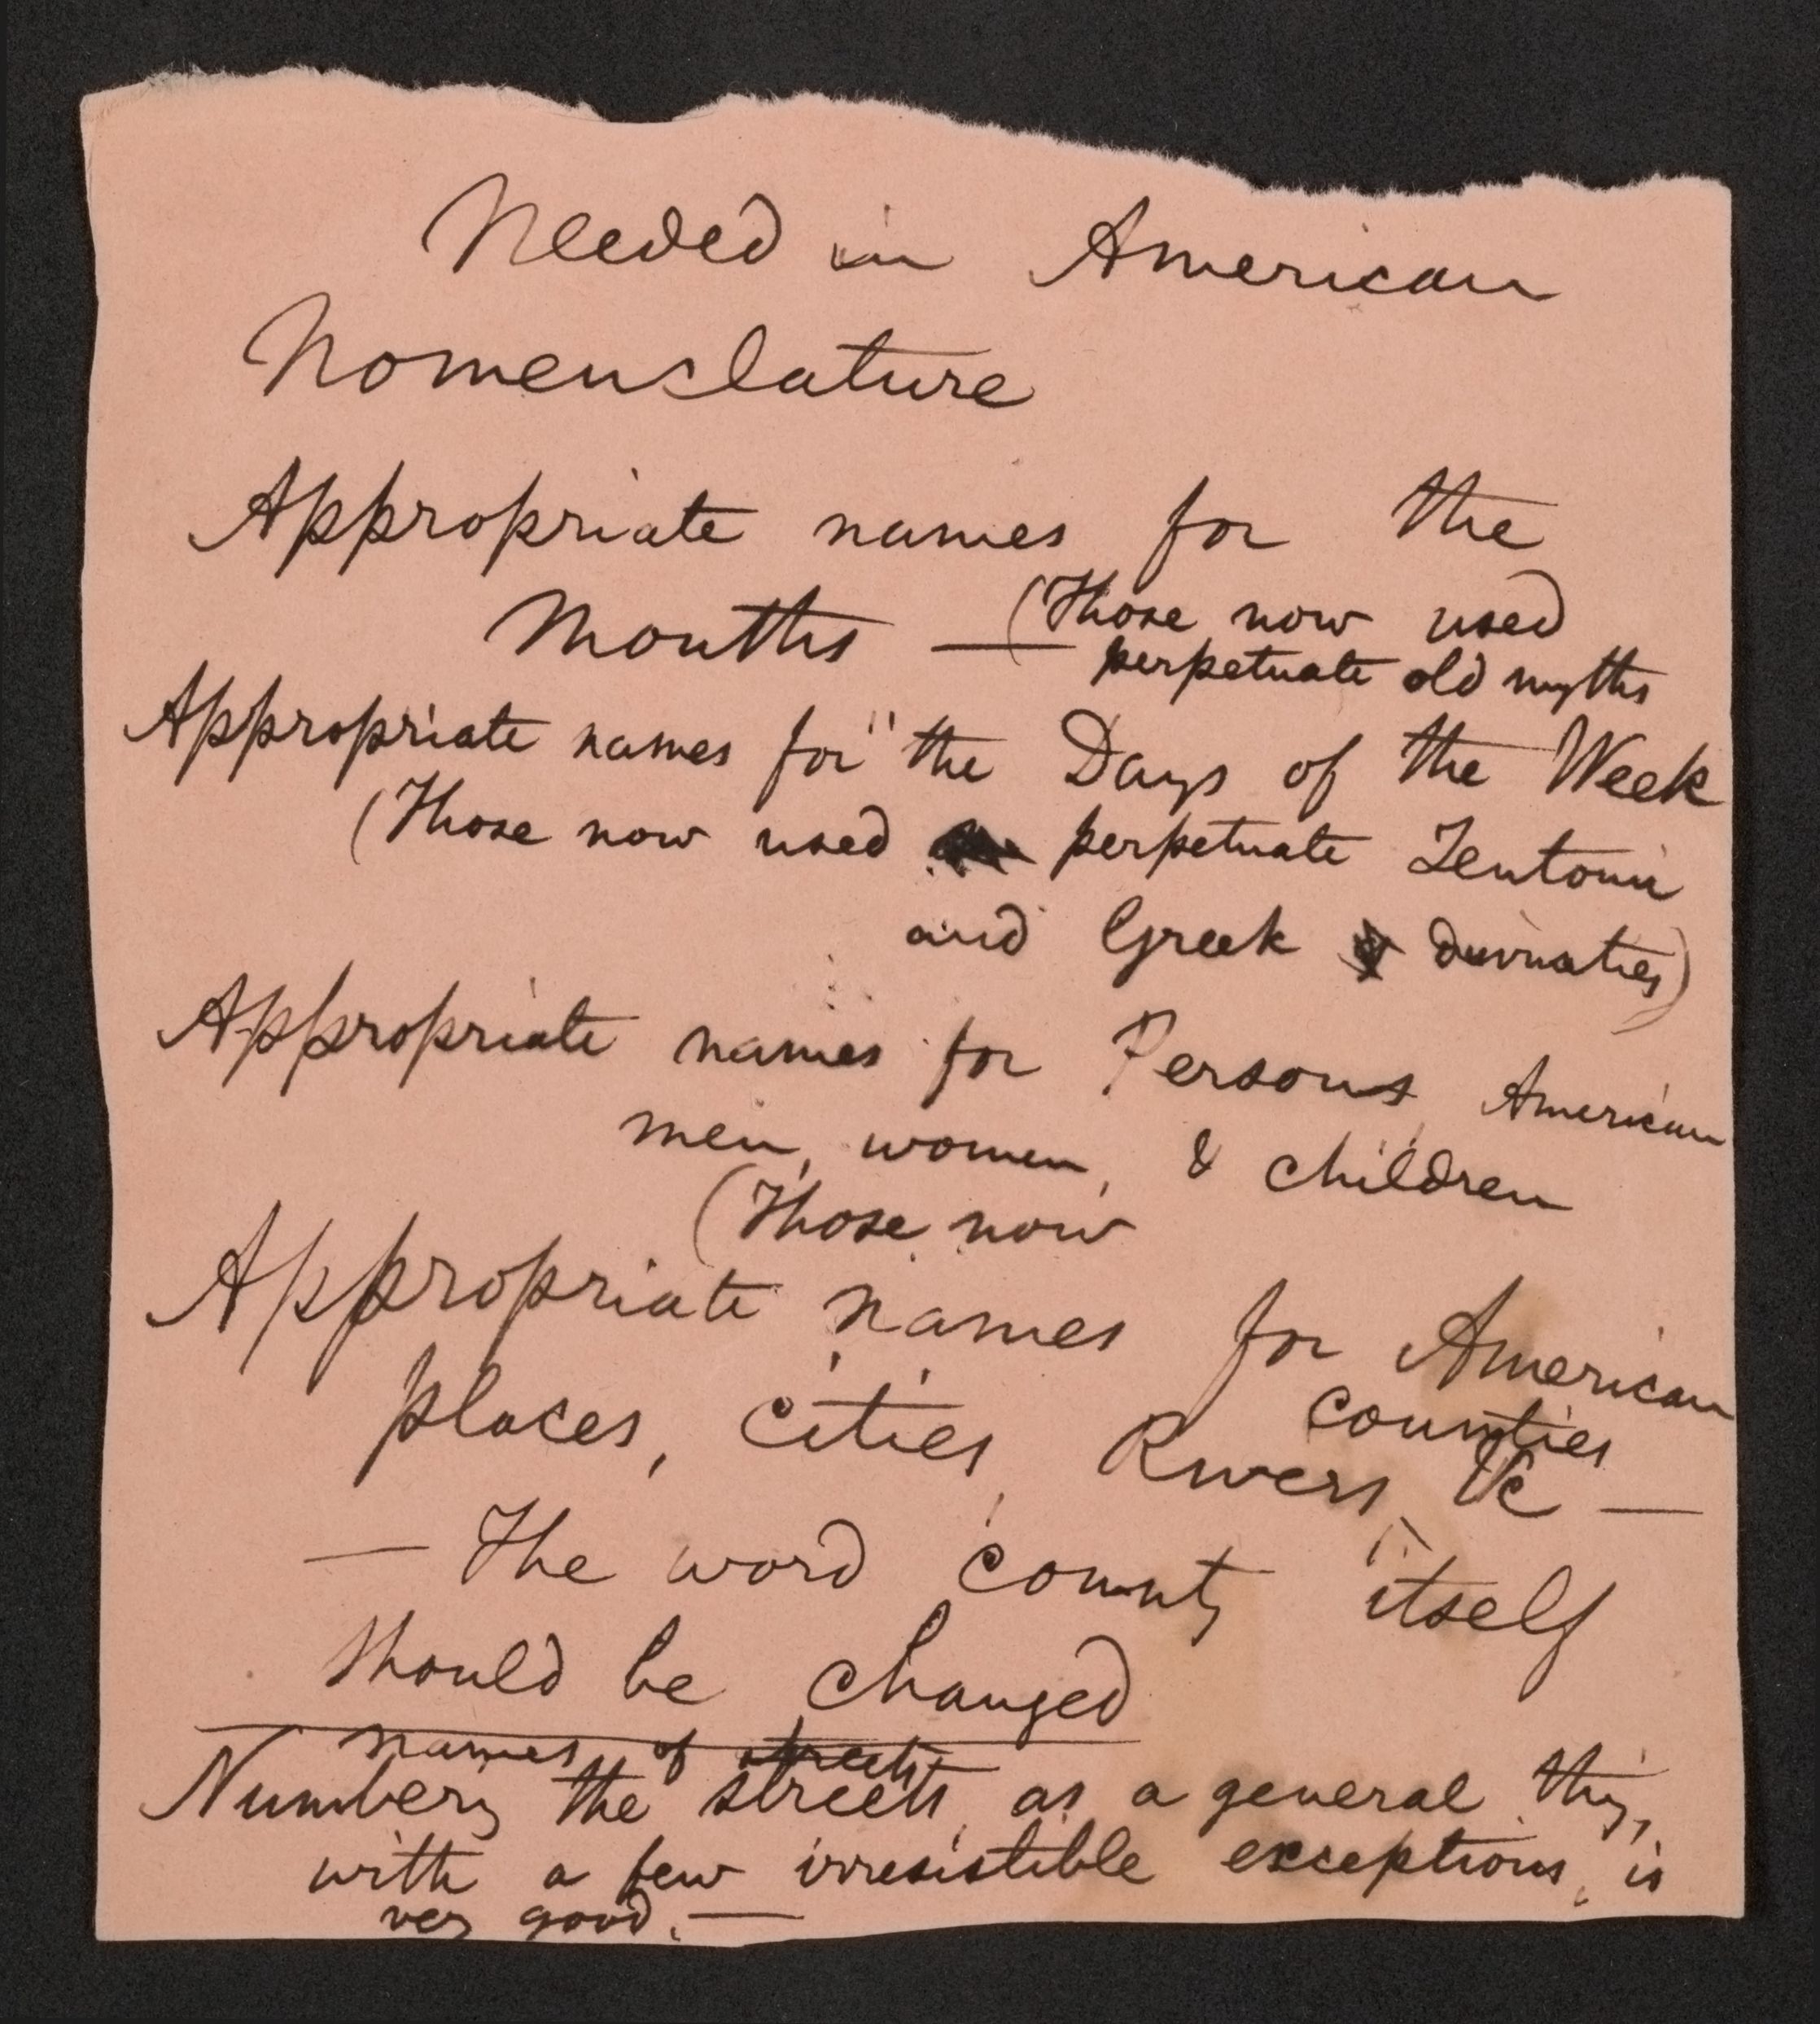 Needed in American
Nomenclature
Appropriate names for the
Months — (Those now used
perpetuate old myths
Appropriate names for the Days of the Week
(Those now used perpetuate Teutonic
and Greek divinities)
Appropriate names for Persons American
men, women, & children
(Those now
Appropriate names for American
places, cities, Rivers, counties
&c —
— The word county itself
should be changed
names of streets
Numbering the streets, as a general thing,
with a few irresistible exceptions, is
very good. —